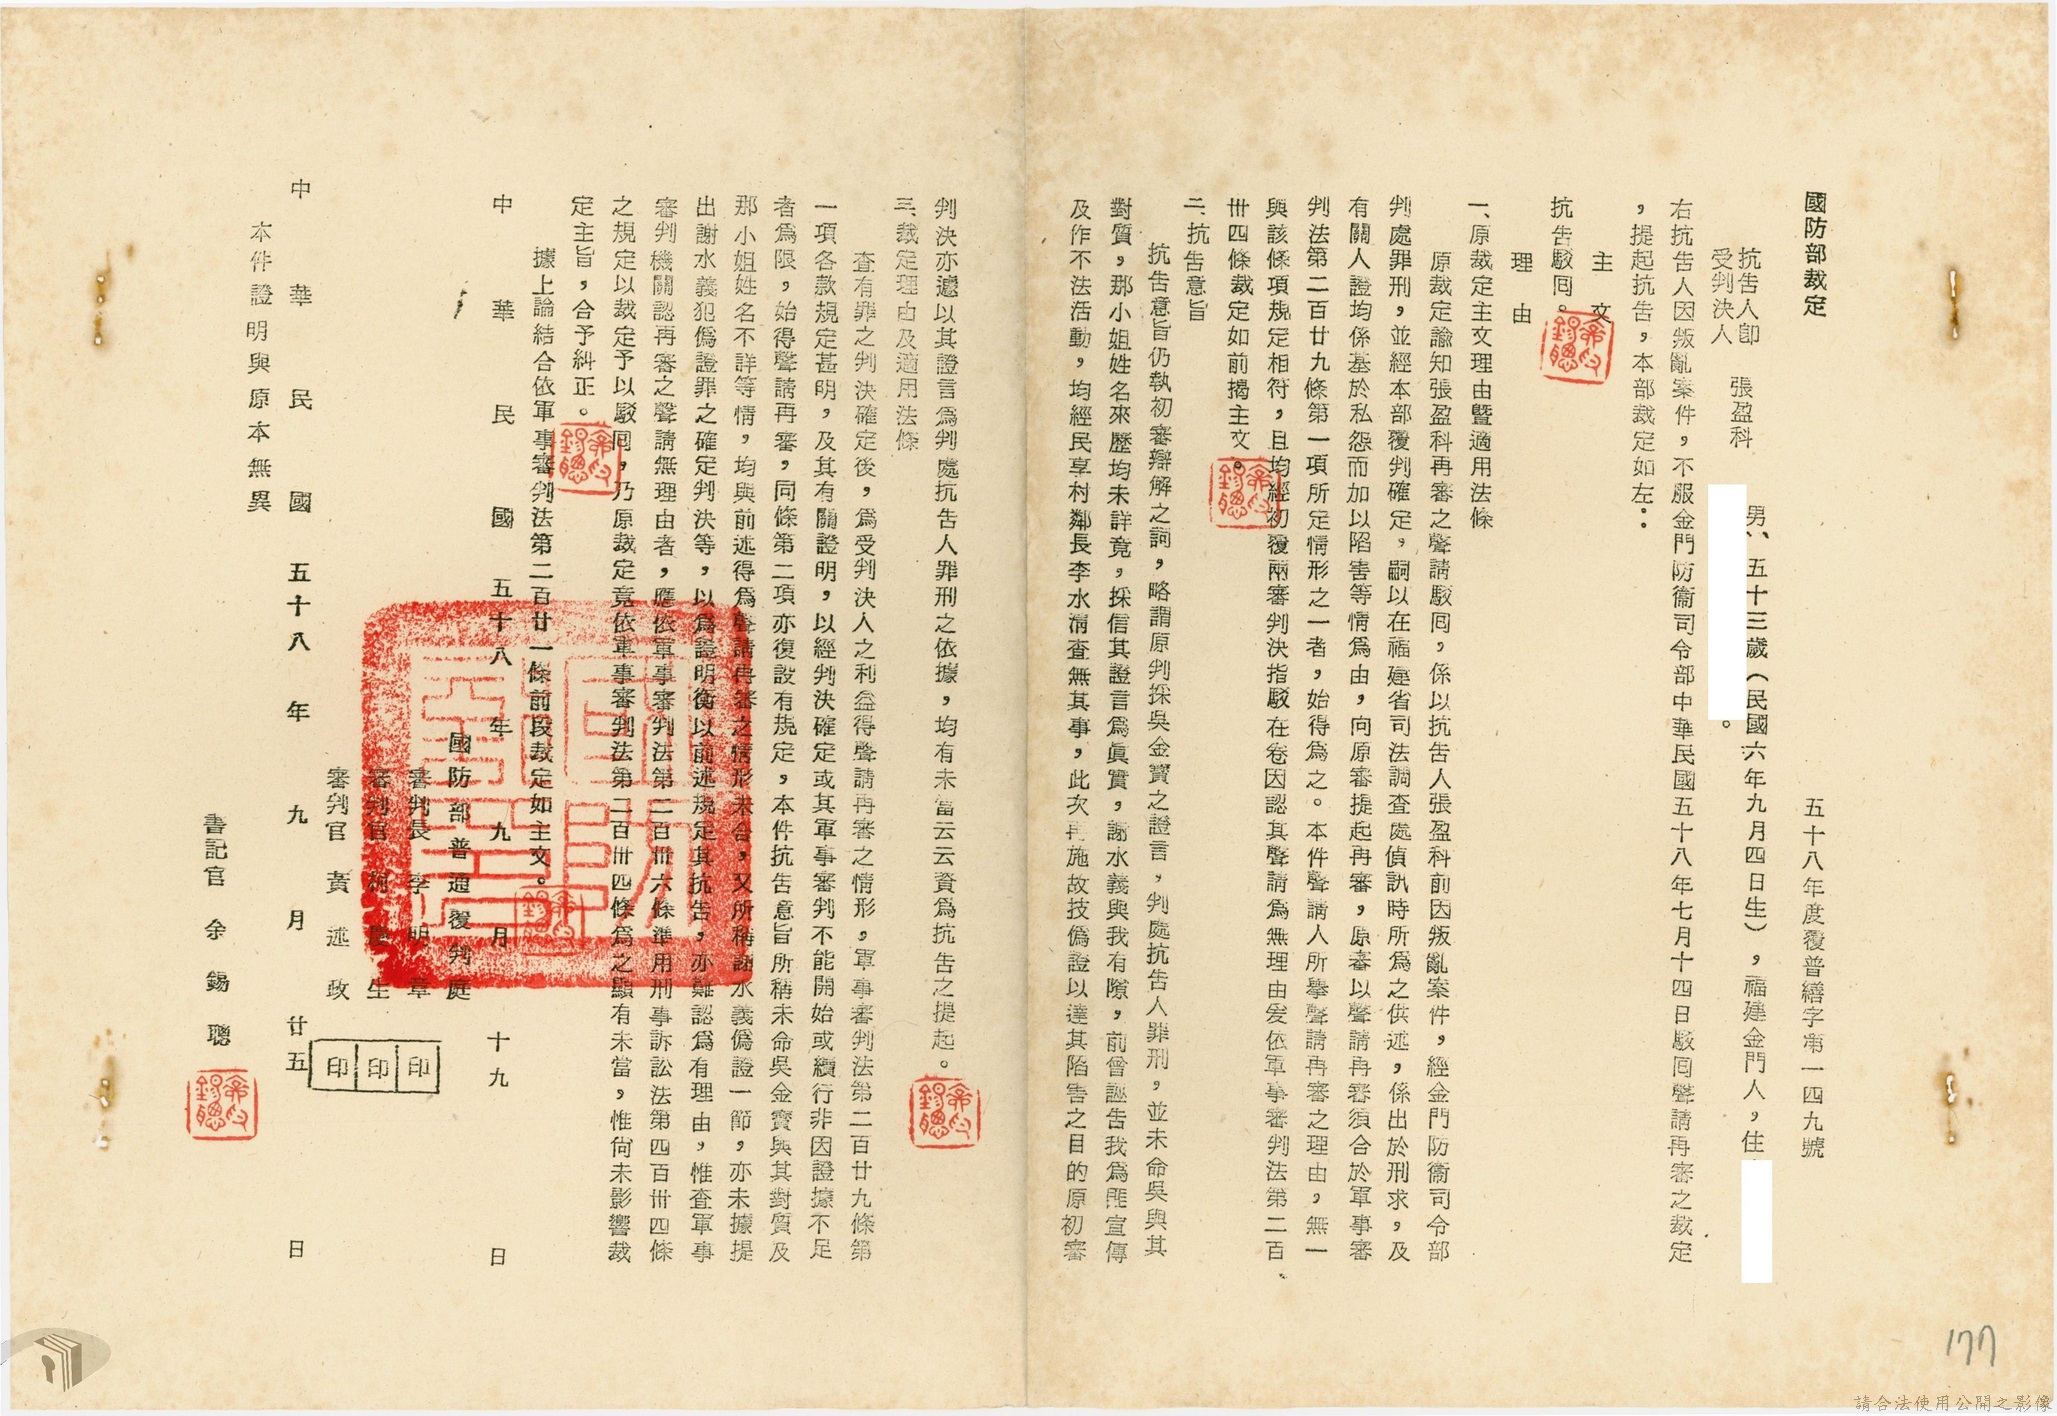 國防部裁定
五十八年度覆普繕字第一四九號
抗告人即
受判決人
張盈科
男、五十三歲（民國六年九月四日生），福建金門人，住
。
右抗告人因叛亂案件，不服金門防衞司令部中華民國五十八年七月十四日駁囘聲請再審之裁定
，提起抗告，本部裁定如左：
主文
抗告駁囘。
理由
一、原裁定主文理由暨適用法條
原裁定諭知張盈科再審之聲請駁囘，係以抗告人張盈科前因叛亂案件，經金門防衞司令部
判處罪刑，並經本部覆判確定，嗣以在福建省司法調查處偵訊時所爲之供述，係出於刑求，及
有關人證均係基於私怨而加以陷害等情爲由，向原審提起再審，原審以聲請再審須合於軍事審
判法第二百廿九條第一項所定情形之一者，始得爲之。本件聲請人所舉聲請再審之理由，無一
與該條項規定相符，且均經初覆兩審判決指駁在卷因認其聲請爲無理由爰依軍事審判法第二百
卅四條裁定如前揭主文。
二、抗告意旨
抗告意旨仍執初審辯解之詞，略謂原判採吳金寳之證言，判處抗告人罪刑，並未命吳與其
對質，那小姐姓名來歷均未詳竟，採信其證言爲眞實，謝水義與我有隙，前曾誣告我爲匪宣傳
及作不法活動，均經民享村鄰長李水清查無其事，此次再施故技僞證以達其陷害之目的原初審
判決亦遽以其證言爲判處抗告人罪刑之依據，均有未當云云資爲抗告之提起。
三、裁定理由及適用法條
查有罪之判決確定後，爲受判決人之利益得聲請再審之情形，軍事審判法第二百廿九條第
一項各款規定甚明，及其有關證明，以經判決確定或其軍事審判不能開始或續行非因證據不足
者爲限，始得聲請再審，同條第二項亦復設有規定，本件抗告意旨所稱未命吳金寳與其對質及
那小姐姓名不詳等情，均與前述得爲聲請再審之情形未合，又所稱謝水義僞證一節，亦未據提
出謝水義犯僞證罪之確定判決等，以爲證明衡以前述規定其抗告，亦難認爲有理由，惟查軍事
審判機關認再審之聲請無理由者，應依軍事審判法第二百卅六條準用刑事訴訟法第四百卅四條
之規定以裁定予以駁囘，乃原裁定竟依軍事審判法第二百卅四條爲之顯有未當，惟尙未影響裁
定主旨，合予糾正。
據上論結合依軍事審判法第二百廿一條前段裁定如主文。
中華民國五十八年九月十九日
國防部普通覆判庭
審判長李明章印
審判官柯慶生印
審判官黃述政印
中華民國五十八年九月廿五日
本件證明與原本無異
書記官余錫聰
177
請合法使用公開之影像